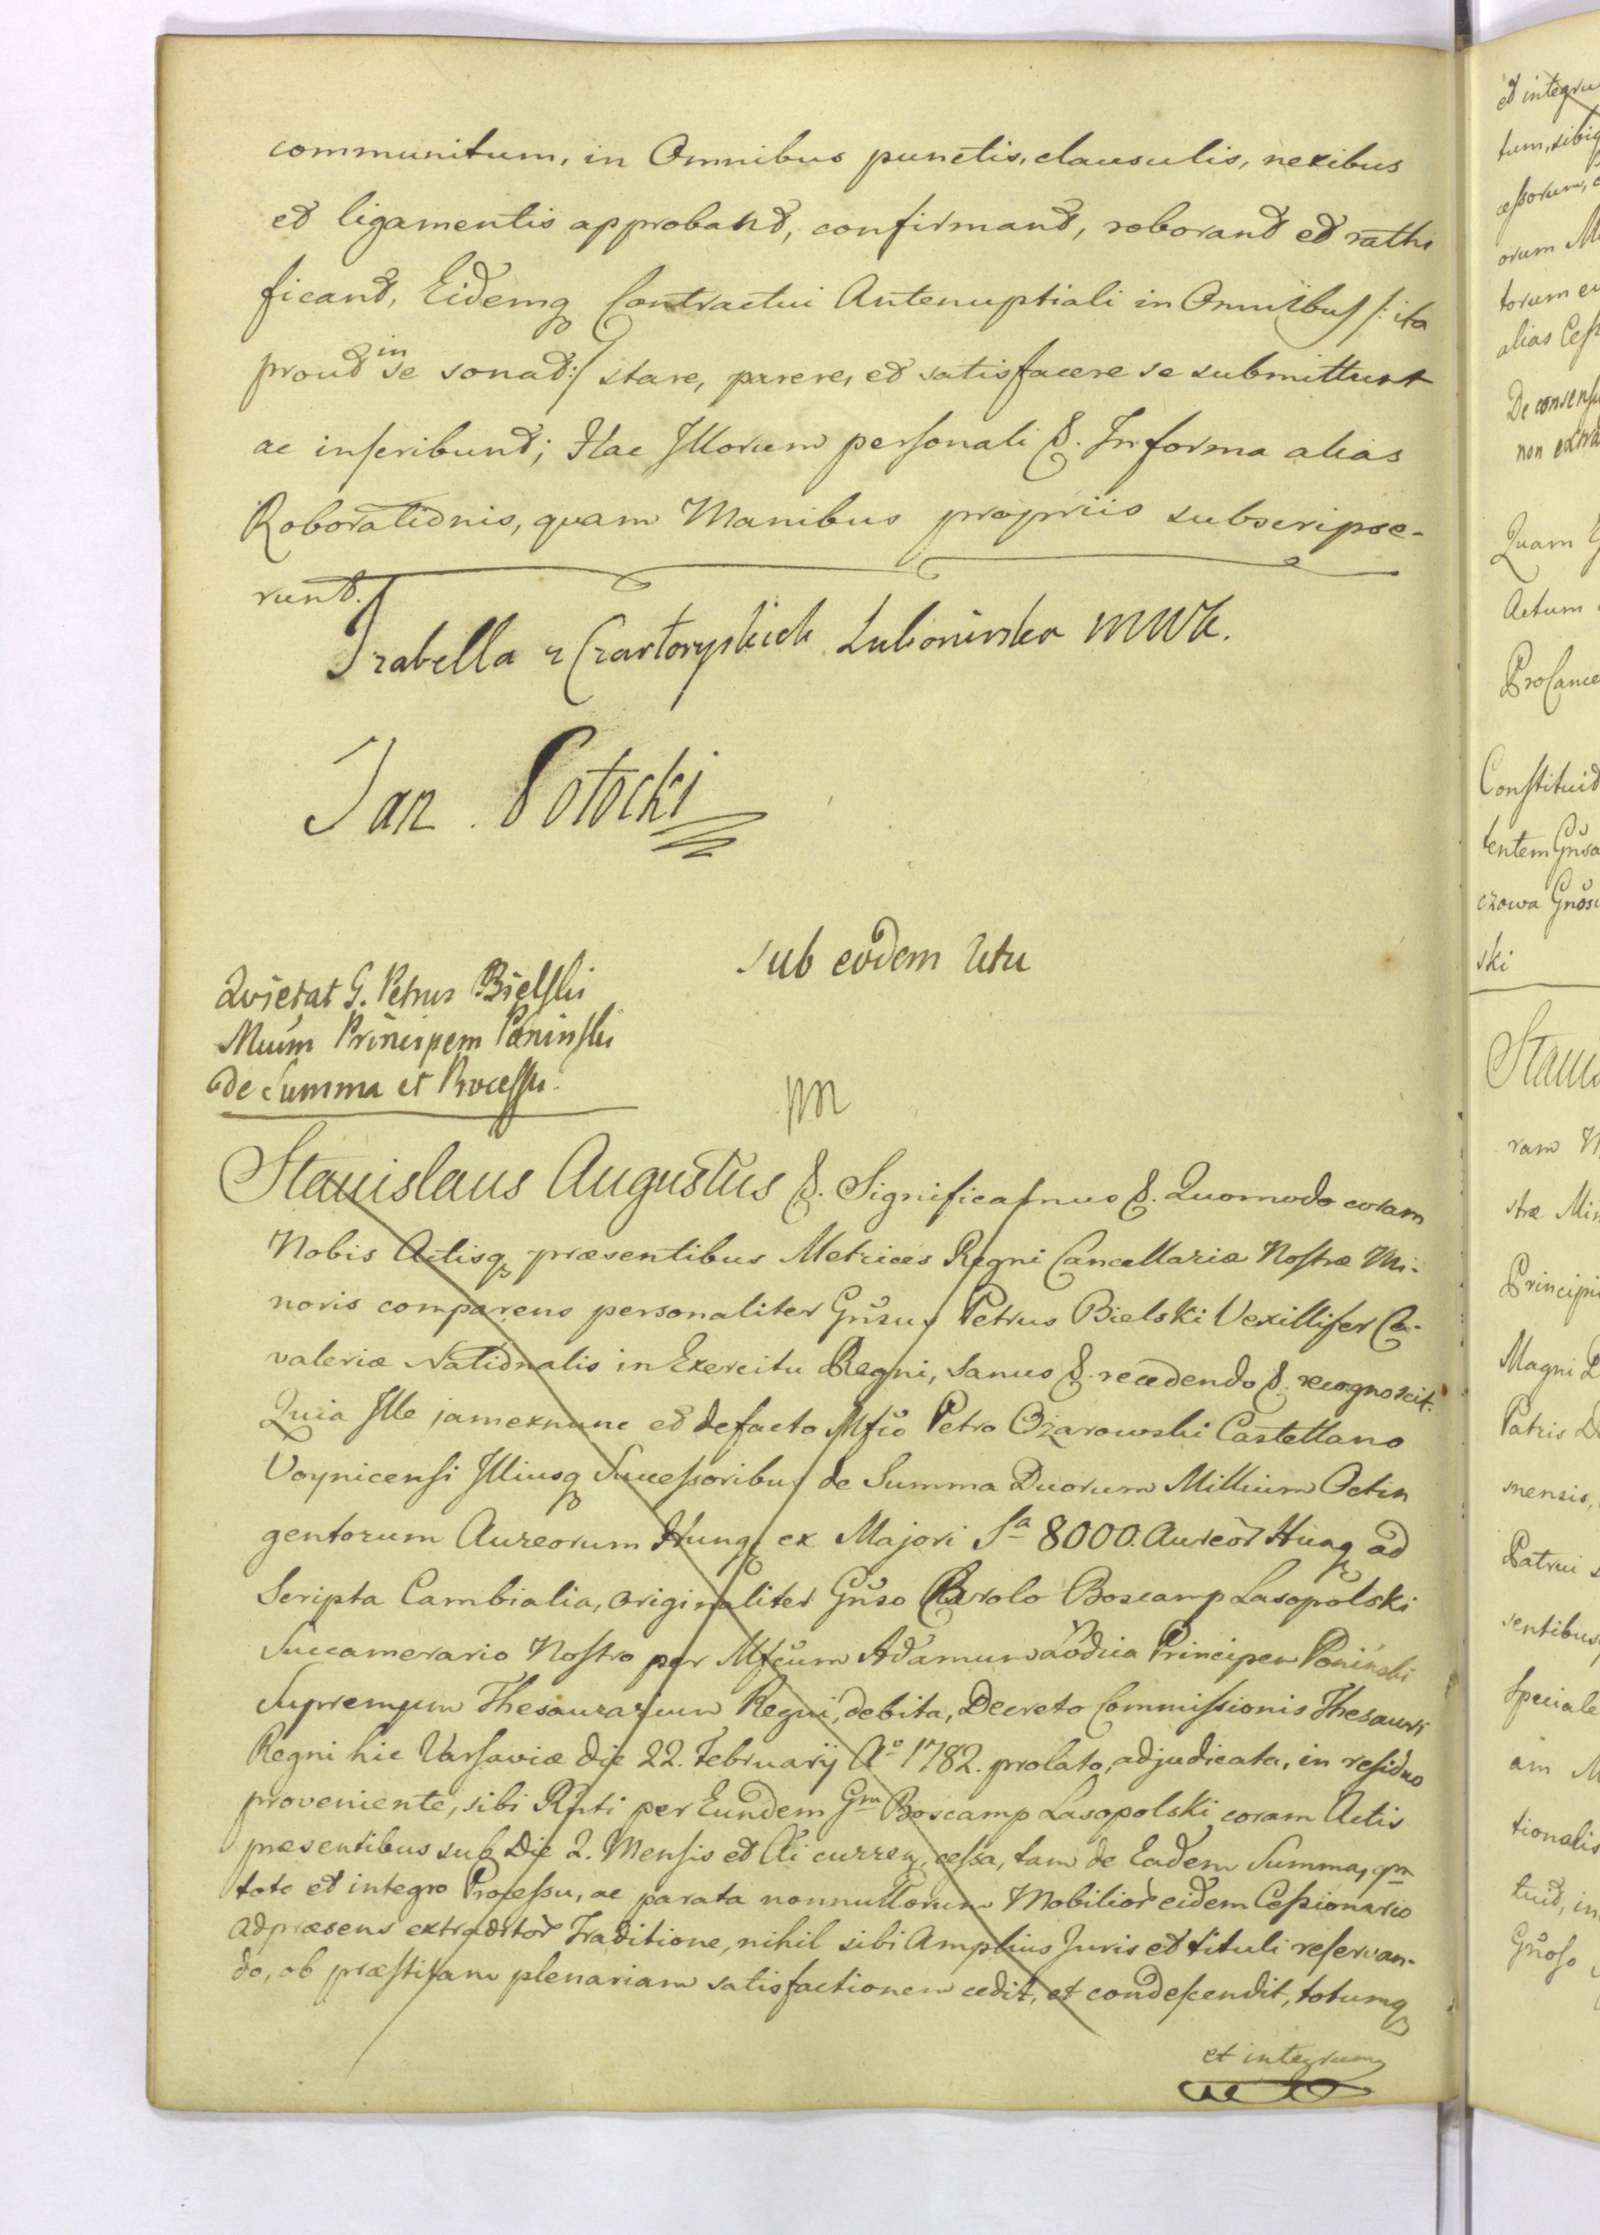 communitum, in Omnibus punctis, clausulis, nexibus
et ligamentis approbant, confirmant, roborant et rathi
ficant, Eidemq Contractui Antenuptiali in Omnibus /: ita
prout in se sonat :/ stare, parere, et satisfacere se submittunt
ac inscribunt; Hac Illorum personali &. In forma alias
Roborationis, quam Manibus propriis subscripse-
runt.
Izabella z Czartoryskich Lubomirska MWK.
Jan Potocki
sub eodem Actu
Quietat G. Petrus Bielski
Mcum Principem Poninski
de Summa et Processu.
Stanislaus Augustus &. Significamus &. Quomodo coram
Nobis Actisq præsentibus Metrices Regni Cancellariæ Nostræ Mi-
noris comparens personaliter Gnsus Petrus Bielski Vexillifer Ca-
valeriæ Nationalis in Exercitu Regni, sanus &. recedendo &. recognoscit.
Quia Ille jam exnunc et defacto Mfco Petro Ożarowski Castellano
Voynicensi Illiusq Successoribus de Summa Duorum Millium Octin
gentorum Aureorum Hung ex Majori Sa 8000. Aureor Hung ad
Scripta Cambialia, originaliter Gnso Carolo Boscamp Lasopolski
Succamerario Nostro per Mfcum Adamum Lodzia Principem Poninski
Supremum Thesaurarium Regni, debita, Decreto Commissionis Thesauri
Regni hic Varsaviæ die 22. Februarij Ao 1782. prolato, adjudicata, in residuo
proveniente, sibi Rnti per Eundem Gm Boscamp Lasopolski coram Actis
præsentibus sub Die 2. Mensis et Ai curren, cessa, tam de Eadem Summa, qm
toto et integro Processu, ac parata nonnullorum Mobilior eidem Cessionario
ad præsens extraditor Traditione, nihil sibi Amplius Juris et tituli reservan-
do, ob præstitam plenariam satisfactionem cedit, et condescendit, totumq
et integrum
et integru
tum, sibiq
cessorum,
orum
torum
alias
De consensu
non extra
Quam
Actum
ProCance
Constituit
tentem Gnso
czowa Gnos
ski
Stanis
ram
stræ Min
Principi
Magni
Patris
mensis,
Patrui
sentibus
speciale
am
tionalis
tuit, in
Gnoso